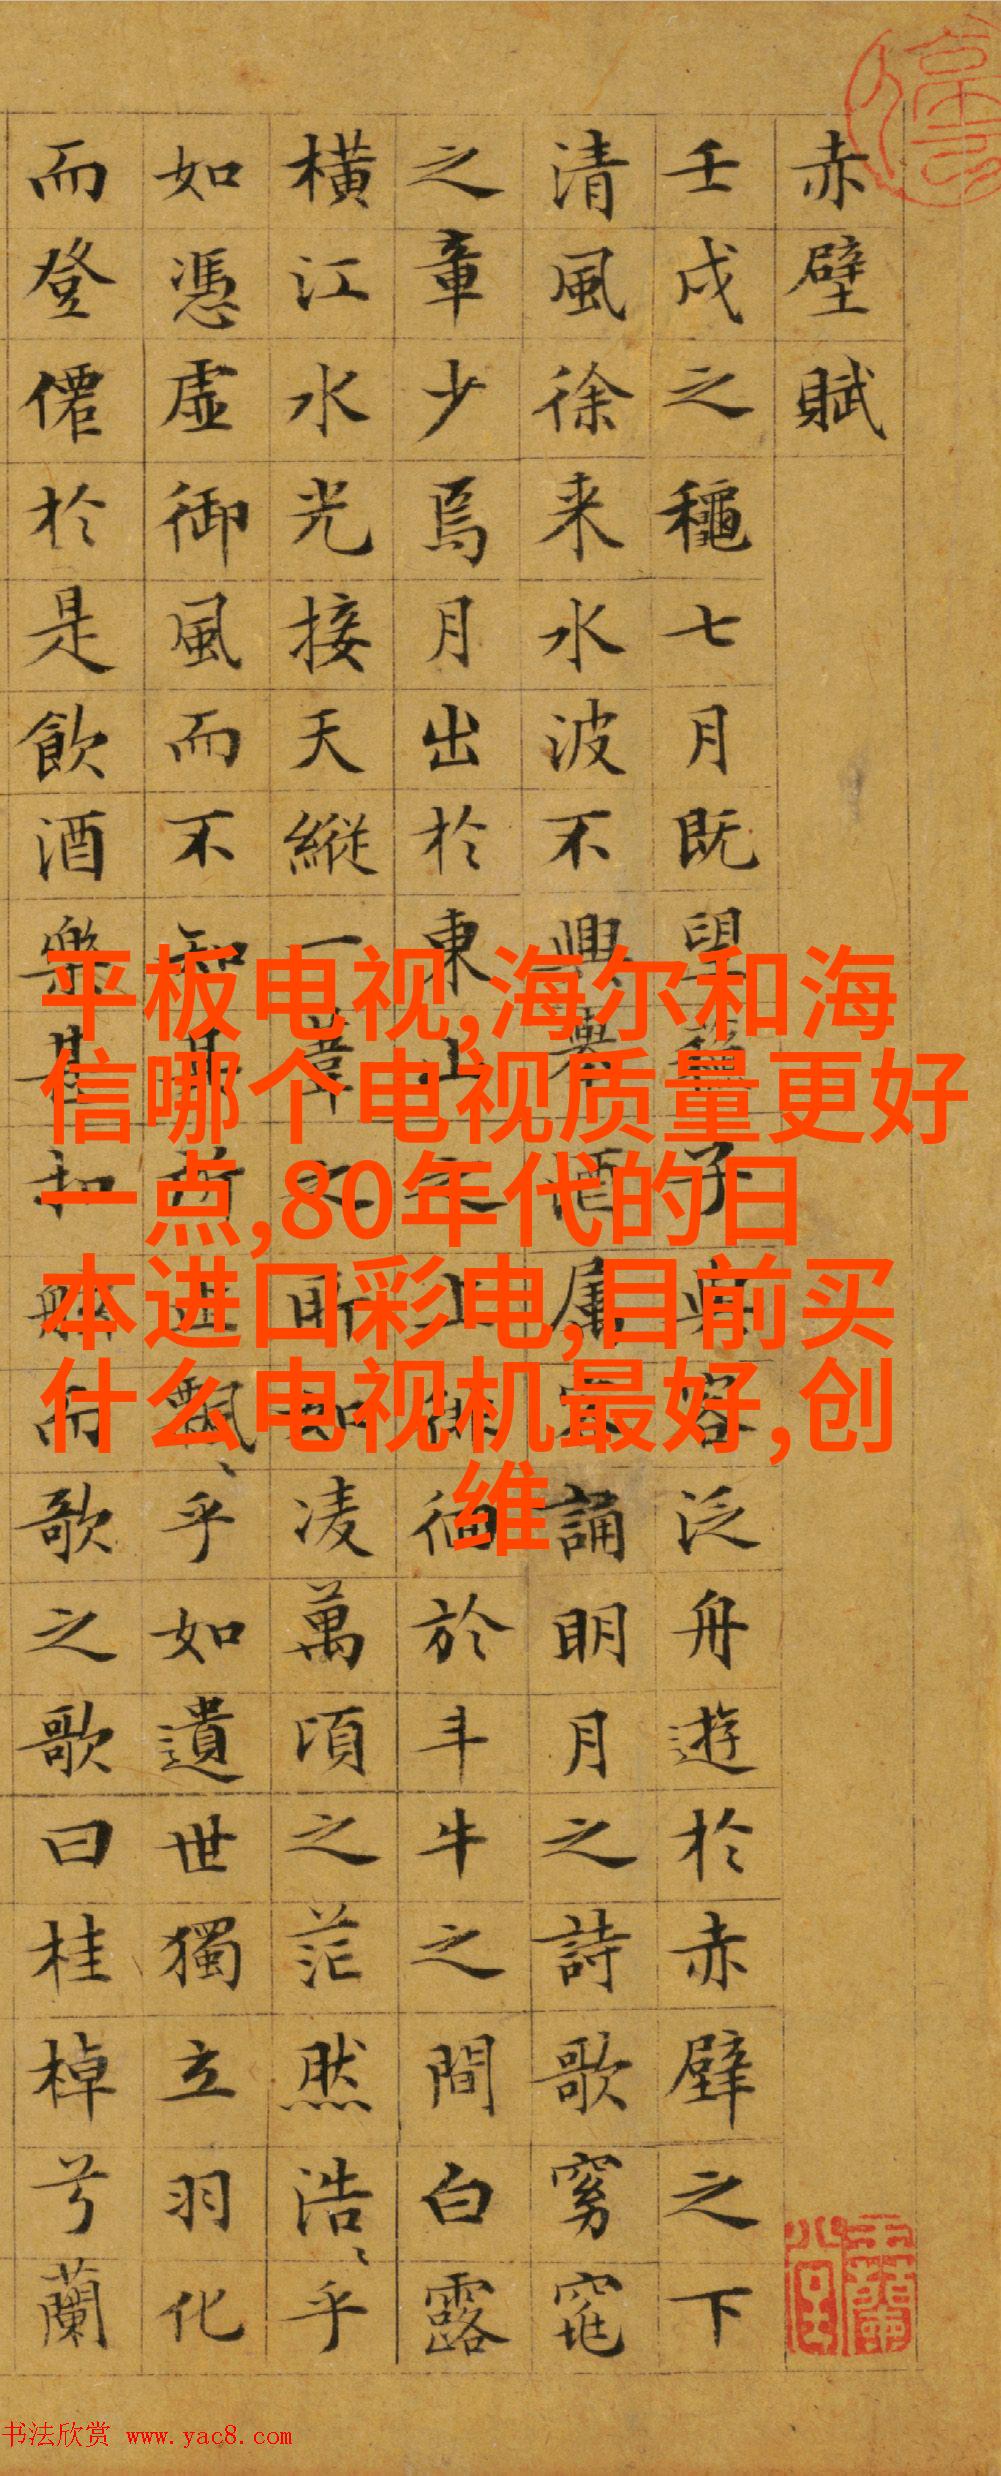 赤壁賦
壬戌之龝七月既望蘇子與客泛舟遊於赤壁之下
清風徐来水波不興舉酒屬客誦明月之詩歌窈窕
之章少焉月出於東山之上徘徊於斗牛之間白露
橫江水光接天縱一葦之所如凌萬頃之茫然浩〻乎
如憑虛御風而不知其所止飄〻乎如遺世獨立羽化
而登僊於是飲酒樂甚扣舷而歌之歌曰桂棹兮蘭
平板电视,海尔和海
信哪个电视质量更好
一点,80年代的日
本进口彩电,目前买
什么电视机最好,创
维
书法欣赏 www.yac8.com